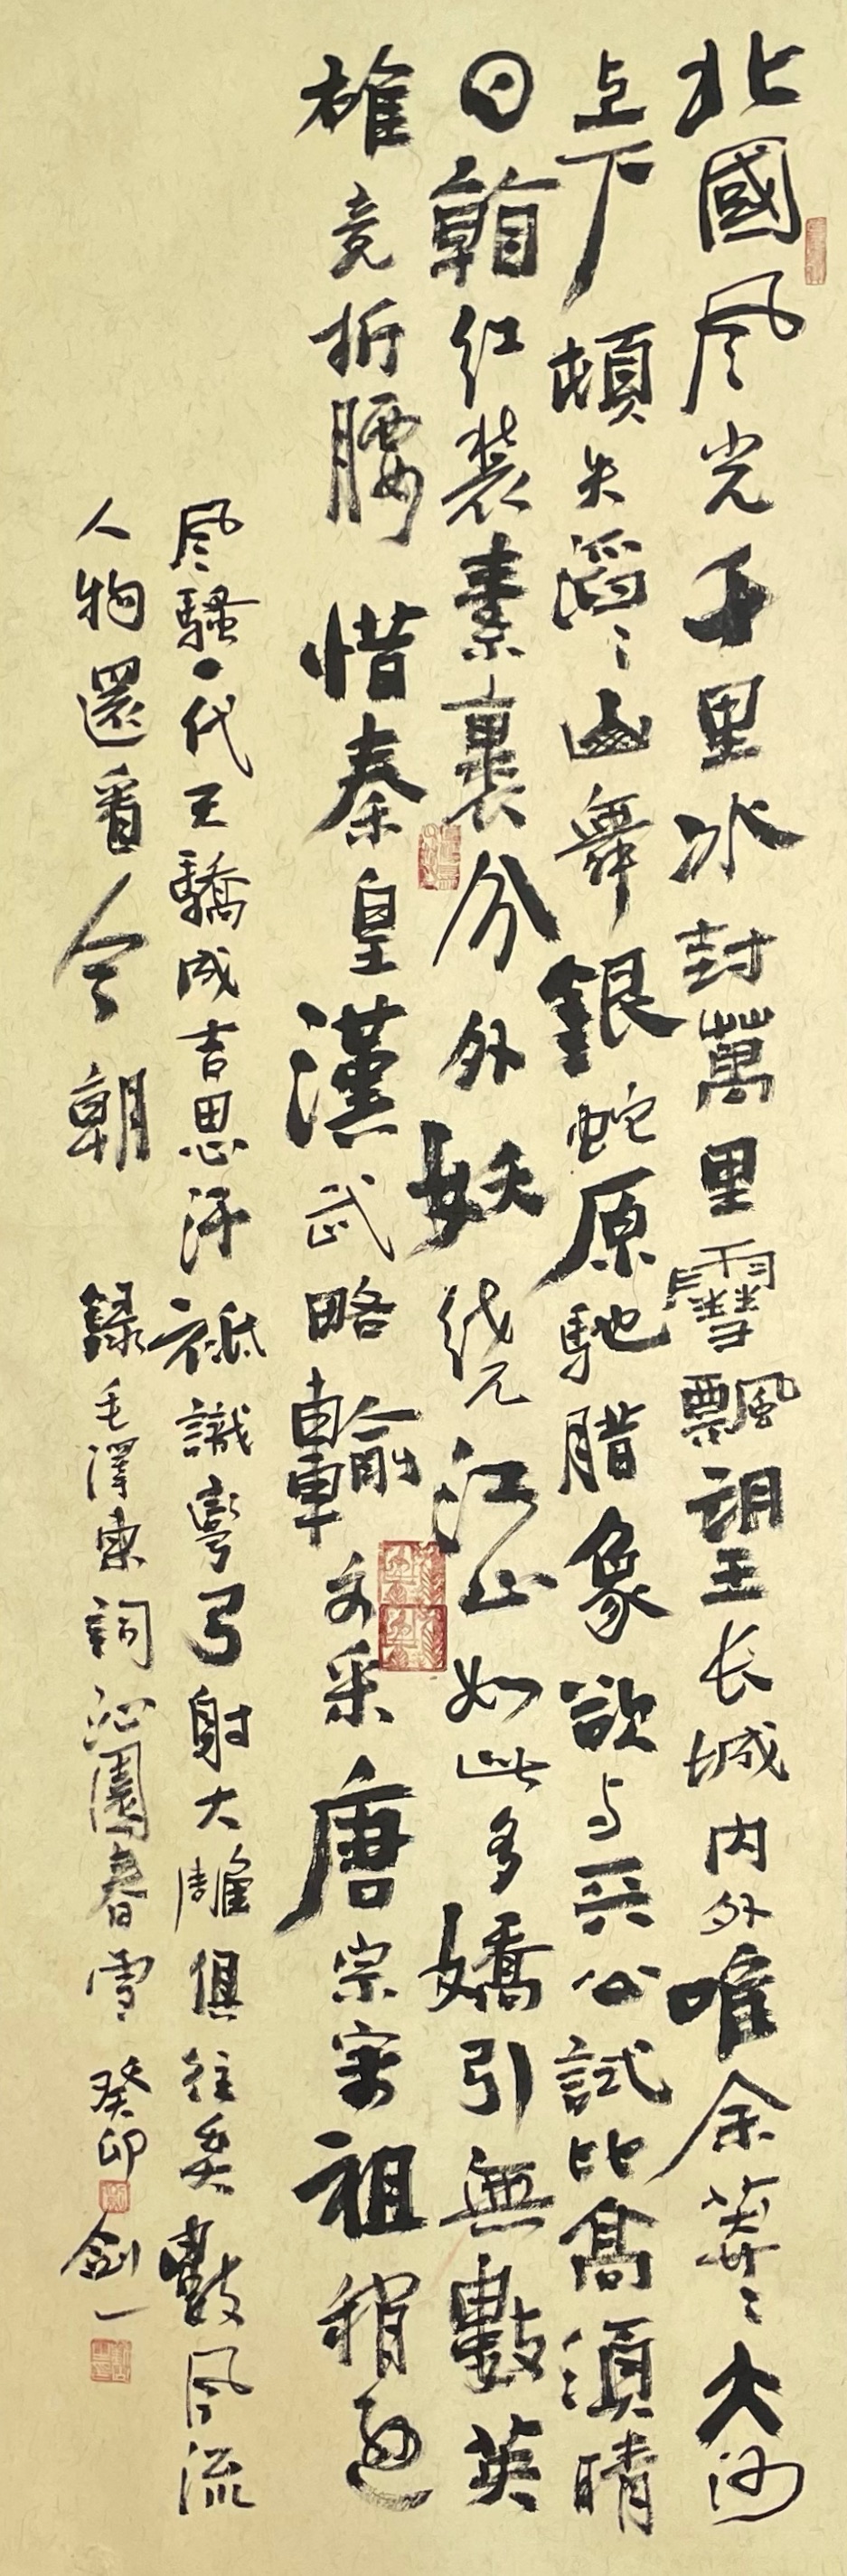 北國风光千里冰封萬里雪飄望长城内外唯余莽〻大河
上下頓失滔〻山舞銀蛇原馳腊象欲与天公試比高須晴
日看红装素裹分外妖绕江山如此多嬌引無數英
雄竞折腰惜秦皇漢武略輸文采唐宗宋祖稍逊
风騷一代天驕成吉思汗祗識彎弓射大雕俱往矣數风流
人物還看今朝 録毛澤東詞沁園春雪 癸卯 剑一